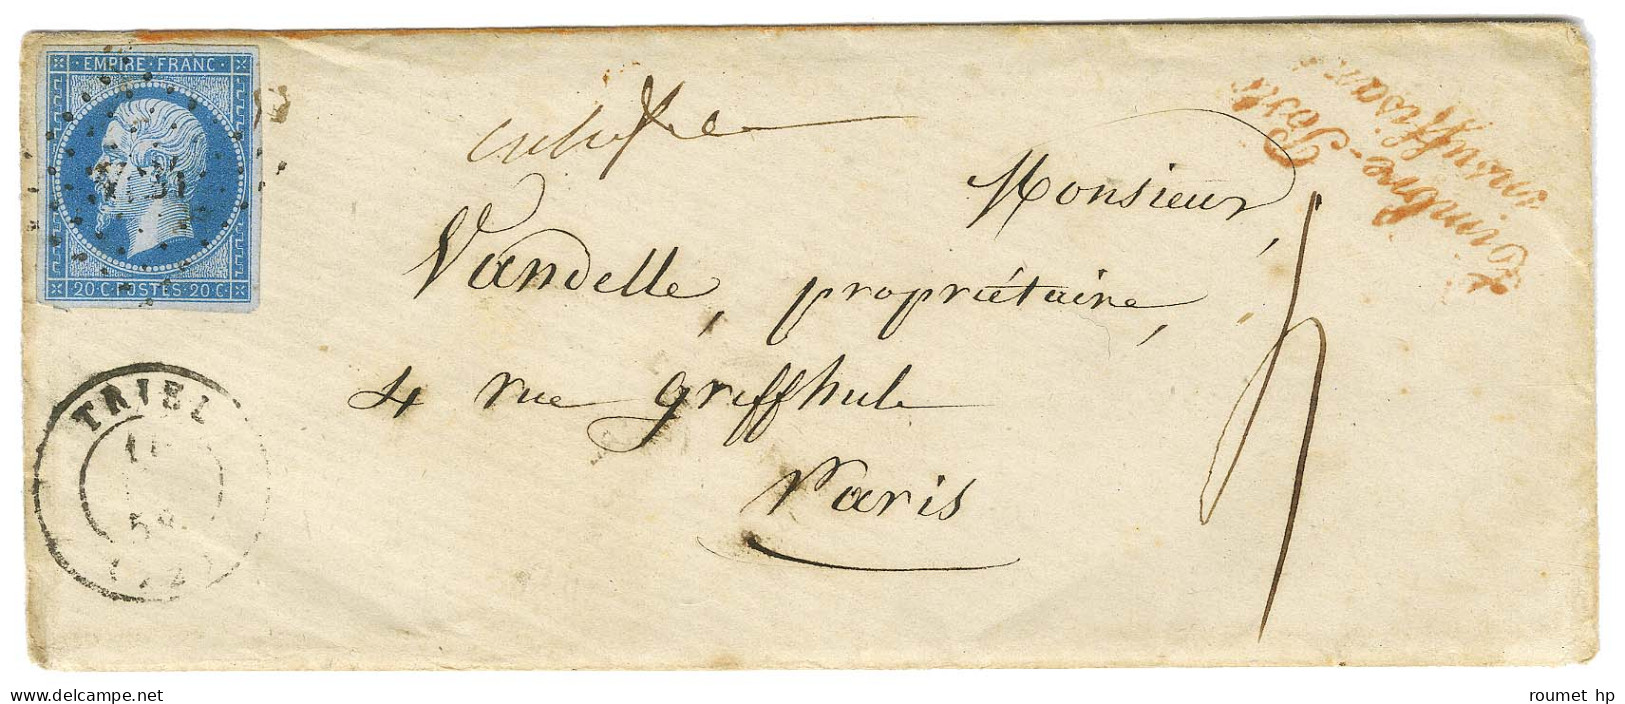 EMPIRE FRANC
20 C. POSTES 20 C.
Timbre-Poste
insuffisant
Monsieur,
Vandelle, propriétaire,
4 rue griffhule
Paris
TRIEL
roumet hp